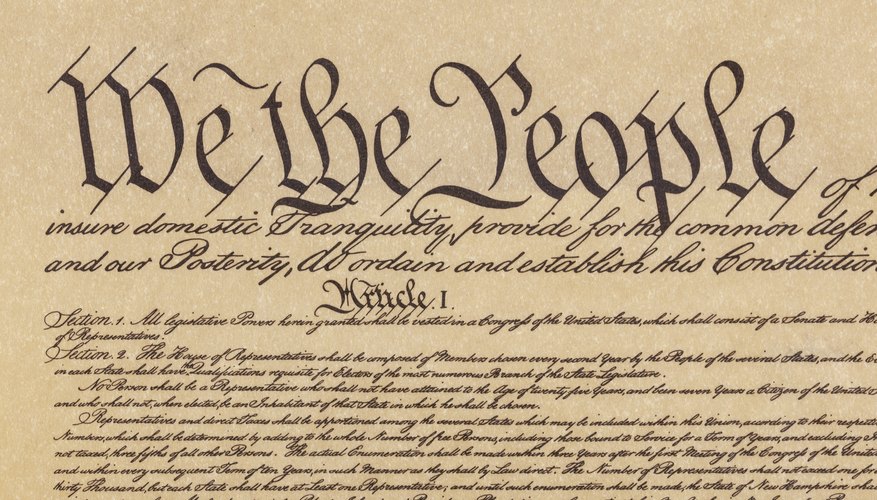 We the People of
insure domestic Tranquility, provide for the common defen
and our Posterity, do ordain and establish this Constitution
Article. I.
Section. 1. All legislative Powers herein granted shall be vested in a Congress of the United States, which shall consist of a Senate and Ho
of Representatives.
Section. 2. The House of Representatives shall be composed of Members chosen every second Year by the People of the several States, and the
in each State shall have the Qualifications requisite for Electors of the most numerous Branch of the State Legislature.
No Person shall be a Representative who shall not have attained to the Age of twenty five Years, and been seven Years a Citizen of the United
and who shall not, when elected, be an Inhabitant of that State in which he shall be chosen.
Representatives and direct Taxes shall be apportioned among the several States which may be included within this Union, according to their respective
Numbers, which shall be determined by adding to the whole Number of free Persons, including those bound to Service for a Term of Years, and excluding
not taxed, three fifths of all other Persons. The actual Enumeration shall be made within three Years after the first Meeting of the Congress of the United
and within every subsequent Term of ten Years, in such Manner as they shall by Law direct. The Number of Representatives shall not exceed one for
thirty Thousand, but each State shall have at Least one Representative; and until such enumeration shall be made, the State of New Hampshire shall